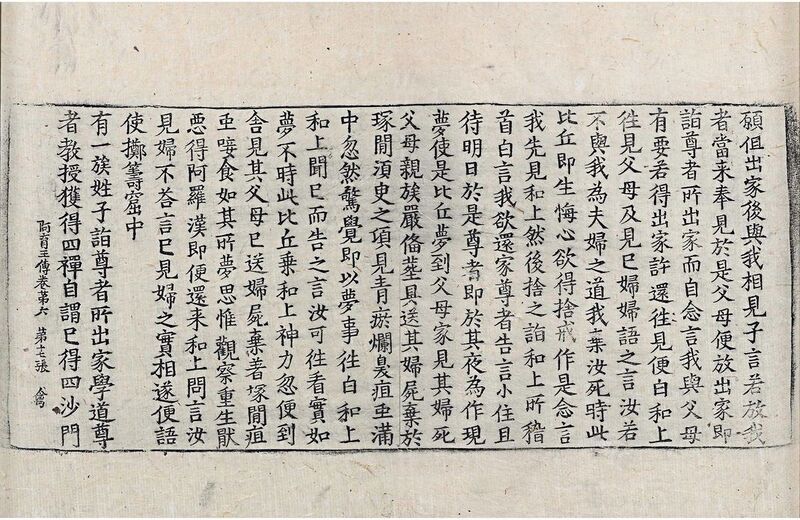 願但出家後與我相見子言若放我
者當来奉見於是父母便放出家即
詣尊者所出家而自念言我與父母
有要若得出家許還徃見便白和上
徃見父母及見巳婦婦語之言汝若
不與我為夫婦之道我棄汝死時此
比丘即生悔心欲得捨戒作是念言
我先見和上然後捨之詣和上所稽
首白言我欲還家尊者告言小住且
待明日於是尊者即於其夜為作現
夢使是比丘夢到父母家見其婦死
父母親族嚴俻葬具送其婦屍棄於
塚間須臾之頃見青瘀爛臭疽虫滿
中忽然驚覺即以夢事徃白和上
和上聞巳而告之言汝可徃看實如
夢不時此比丘乗和上神力忽便到
舎見其父母巳送婦屍棄著塚間疽
虫唼食如其所夢思惟觀察重生猒
惡得阿羅漢即便還来和上問言汝
見婦不荅言巳見婦之實相遂便語
使擲籌窟中
有一族姓子詣尊者所出家學道尊
者教授獲得四禪自謂巳得四沙門
阿育王傳卷第六 第七張 禽